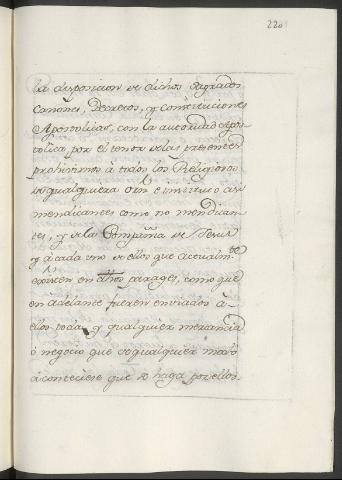 220
la disposicion de dichos Sagrados
Canones, Decretos, y Constituciones
Apostolicas, con la autoridad Apos
tolica, por el tenor de las presentes
prohivimos à todos los Religiosos
de qualquiera Orn è instituto asi
mendicantes como no mendican
tes, y de la Compañia de Jesus
y à cada uno de ellos que actualmte
existen en dhos parages, como que
en adelante fueren enviados à
ellos toda, y qualquier mercancia
ò negocio que de qualquier modo
aconteciese que se haga por ellos.